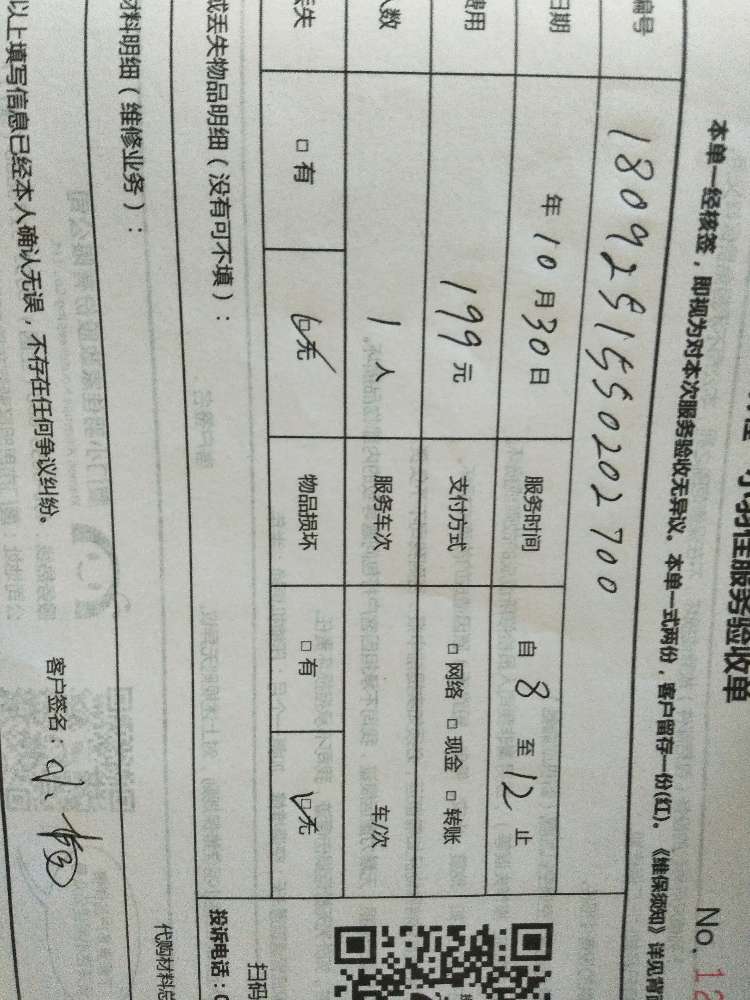 服务验收单
No. 12
本单一经核签，即视为对本次服务验收无异议。本单一式两份，客户留存一份(红)。《维保须知》详见背
编号 1809251550202700
日期 年 10 月 30 日 服务时间 自 8 至 12 止
费用 199 元 支付方式 □ 网络 □ 现金 □ 转账
人数 1 人 服务车次 车/次
丢失 □ 有 □ 无 物品损坏 □ 有 □ 无
或丢失物品明细（没有可不填）：
投诉电话：
扫码
材料明细（维修业务）：
代购材料总
以上填写信息已经本人确认无误，不存在任何争议纠纷。
客户签名：